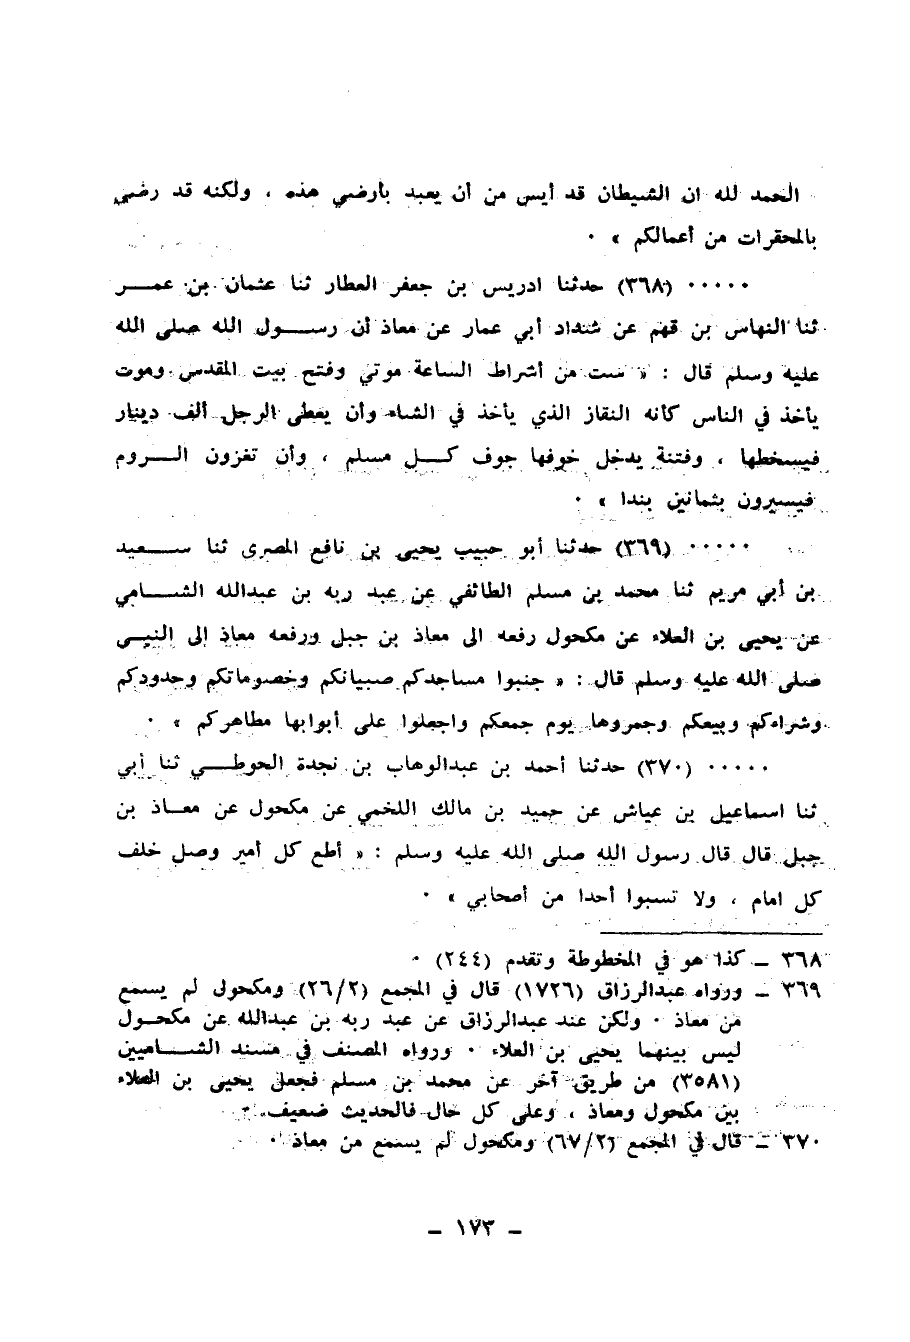 الحمد لله ان الشيطان قد أيس من أن يعبد بأرضي هذه ، ولكنه قد رضي
بالمحقرات من أعمالكم » ٠
٠٠٠٠٠ (٣٦٨) حدثنا ادريس بن جعفر العطار ثنا عثمان بن عمر
ثنا النهاس بن قهم عن شداد أبي عمار عن معاذ أن رسول الله صلى الله
عليه وسلم قال : « ست من أشراط الساعة موتي وفتح بيت المقدس وموت
يأخذ في الناس كأنه النقاز الذي يأخذ في الشاء وأن يعطى الرجل ألف دينار
فيسخطها ، وفتنة يدخل خوفها جوف كل مسلم ، وأن تغزون الروم
فيسيرون بثمانين بندا » ٠
٠٠٠٠٠ (٣٦٩) حدثنا أبو حبيب يحيى بن نافع المصرى ثنا سعيد
بن أبي مريم ثنا محمد بن مسلم الطائفي عن عبد ربه بن عبدالله الشامي
عن يحيى بن العلاء عن مكحول رفعه الى معاذ بن جبل ورفعه معاذ إلى النبي
صلى الله عليه وسلم قال : « جنبوا مساجدكم صبيانكم وخصوماتكم وحدودكم
وشراءكم وبيعكم وجمروها يوم جمعكم واجعلوا على أبوابها مطاهركم » ٠
٠٠٠٠٠ (٣٧٠) حدثنا أحمد بن عبدالوهاب بن نجدة الحوطي ثنا أبي
ثنا اسماعيل بن عياش عن حميد بن مالك اللخمي عن مكحول عن معاذ بن
جبل قال قال رسول الله صلى الله عليه وسلم : « أطع كل أمير وصل خلف
كل امام ، ولا تسبوا أحدا من أصحابي » ٠
٣٦٨ ـ كذا هو في المخطوطة وتقدم (٢٤٤) ٠
٣٦٩ ـ ورواه عبدالرزاق (١٧٢٦) قال في المجمع (٢/٢٦) ومكحول لم يسمع
من معاذ ٠ ولكن عند عبدالرزاق عن عبد ربه بن عبدالله عن مكحول
ليس بينهما يحيى بن العلاء ٠ ورواه المصنف في مسند الشاميين
(٣٥٨١) من طريق آخر عن محمد بن مسلم فجعل يحيى بن العلاء
بين مكحول ومعاذ ، وعلى كل حال فالحديث ضعيف ٠
٣٧٠ ـ قال في المجمع (٢/٦٧) ومكحول لم يسمع من معاذ ٠
ـ ١٧٣ ـ